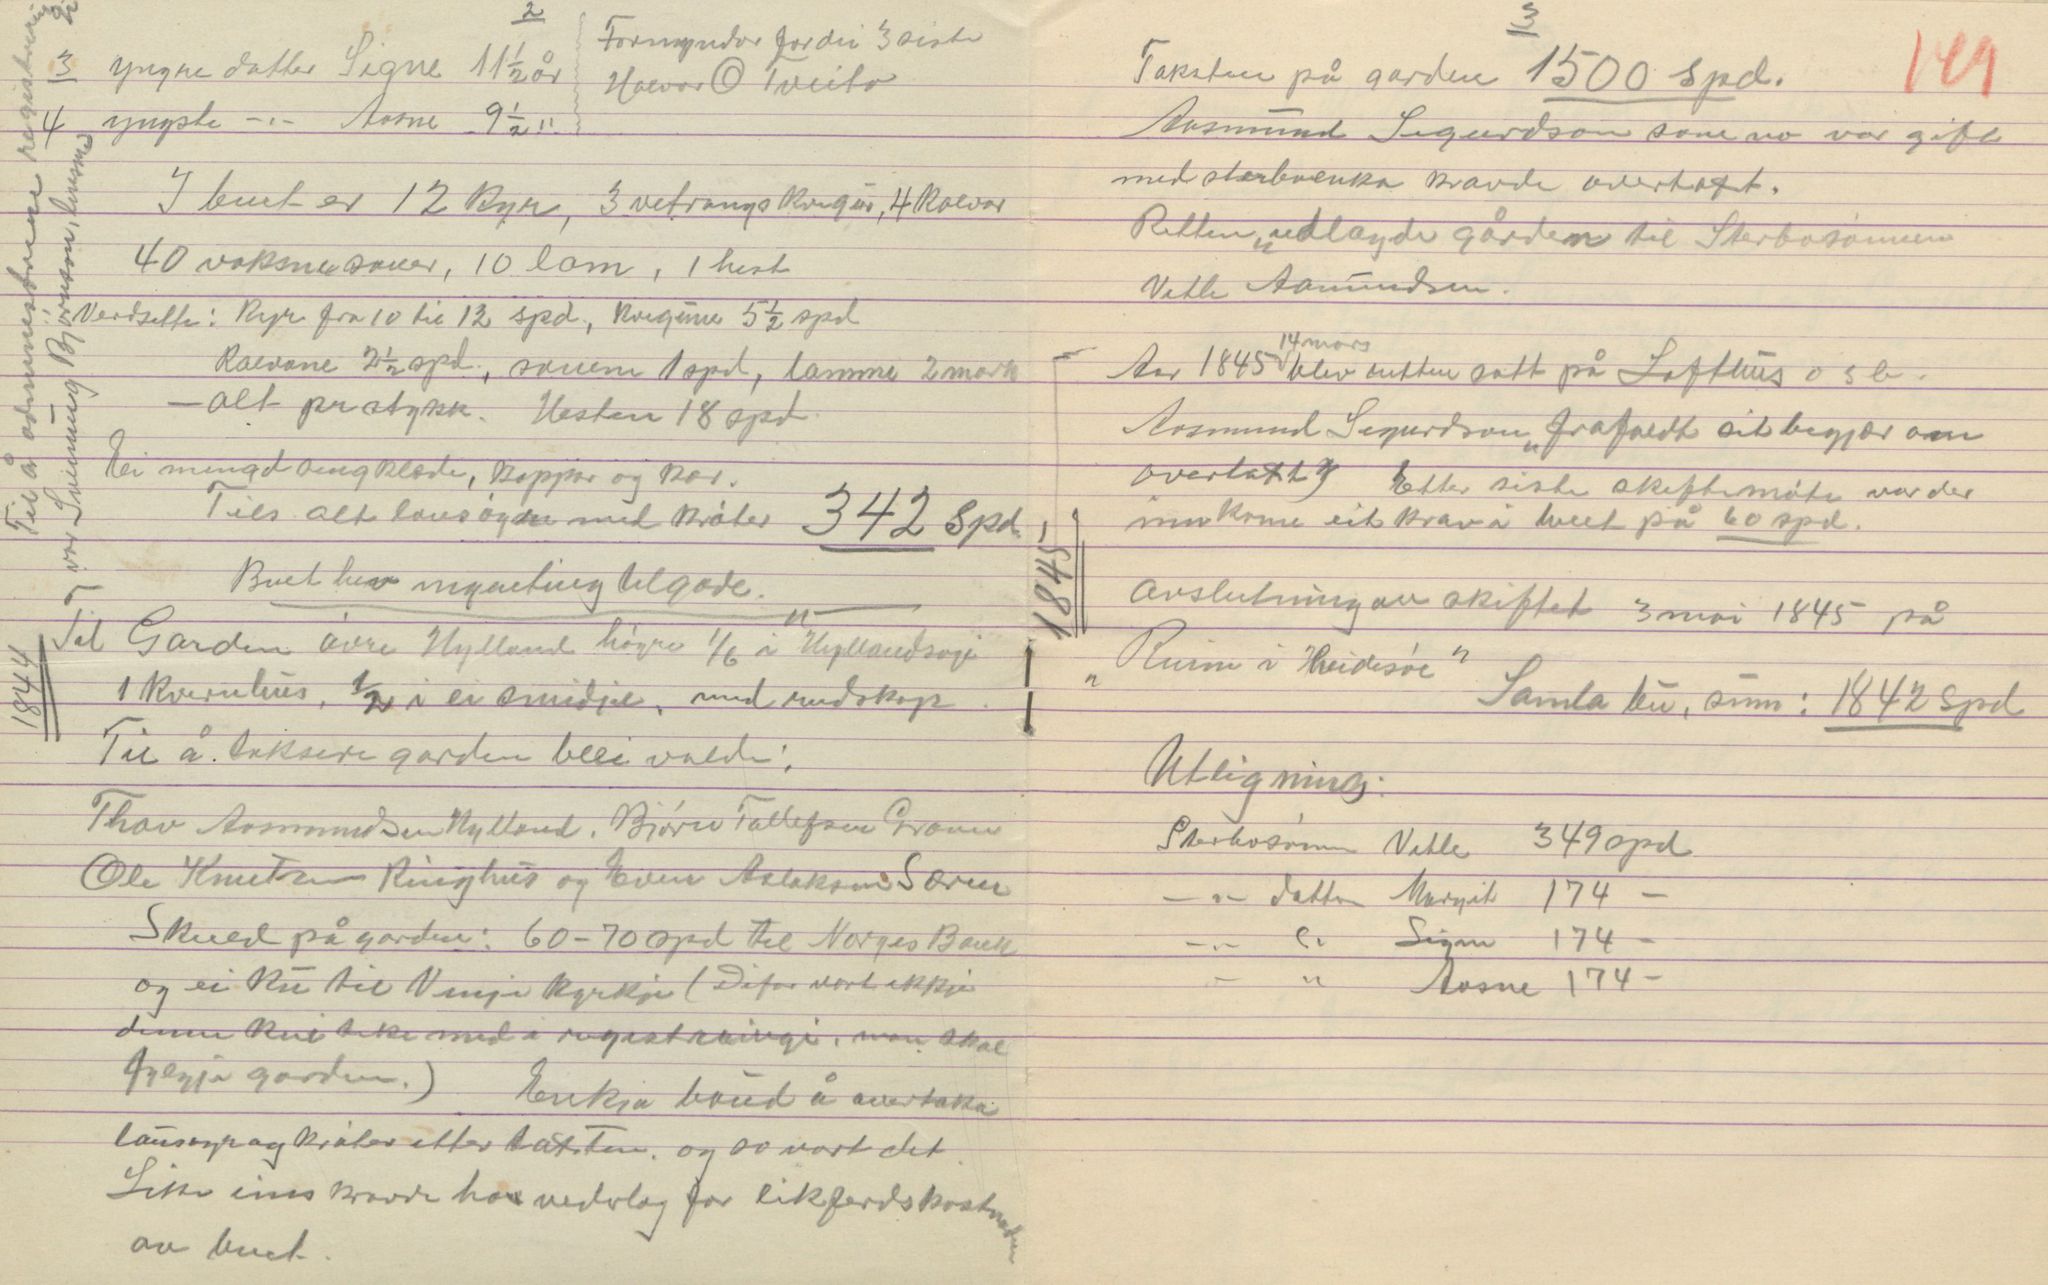 2
3 yngre datter Signe 11½ år
4 yngste -"- Aasne 9½ "
Formyndar for dei 3 siste
Halvor O Tveito
Til å administrere registrering
var Sveinung Bjørnson, lensm.
I buet er 12 kyr, 3 vetrungs kvigur, 4 kalvar
40 vaksne sauer, 10 lam, 1 hest
Verdsette: Kyr fra 10 til 12 spd, kvigune 5½ spd
Kalvane 2½ spd, sauern 1 spd, lamme 2 mark
– alt pr stykk. Hesten 18 spd
Ei mengd sengklæde, koppar og kar.
Tils alt lausøyre med krøter 342 Spd.
Buet hev ingenting tilgode.
1844
Til Garden øvre Hylland høyre 1/6 i "Hyllandsagi
1 kvernhus, ½ i ei smidje, med reidskap.
Til å taksere garden blei valde:
Thov Aasmundsen Hylland, Bjørn Tallefsen Graven
Ole Knutsen Ringhus og Even Aslaksen Særen
Skuld på garden: 60–70 spd til Norges Bank
og ei ku til Vinje kyrkje (Difor vart ikkje
denne kui teke med i registreringi, men skal
fylgja garden.) Enkja baud å overtaka
lausøyr og krøter etter taksten, og so vart det.
Like eins kravde ho vederlag for likferdskostnaden
av buet.
3
149
Taksten på garden 1500 spd.
Aasmund Sigurdson som no var gift
med sterbuenka kravde overtakst.
Retten "udlagde gården til Sterbosønnen
Vetle Aamundsen.
1845
Aar 1845 14 mars blev retten satt på Lofthus o s b.
Aasmund Sigurdson "frafaldt sit begjær om
overtakst" Etter siste skiftemøte var der
innkome eit krav i buet på 60 spd.
Avslutning av skiftet 3 mai 1845 på
"Ruim i Hvidesøe"
Samla bu, sum: 1842 Spd
Utligning:
Sterbosønn Vetle 349 spd
–"– datter Margit 174 –
–"– " Signe 174 –
– " Aasne 174 –